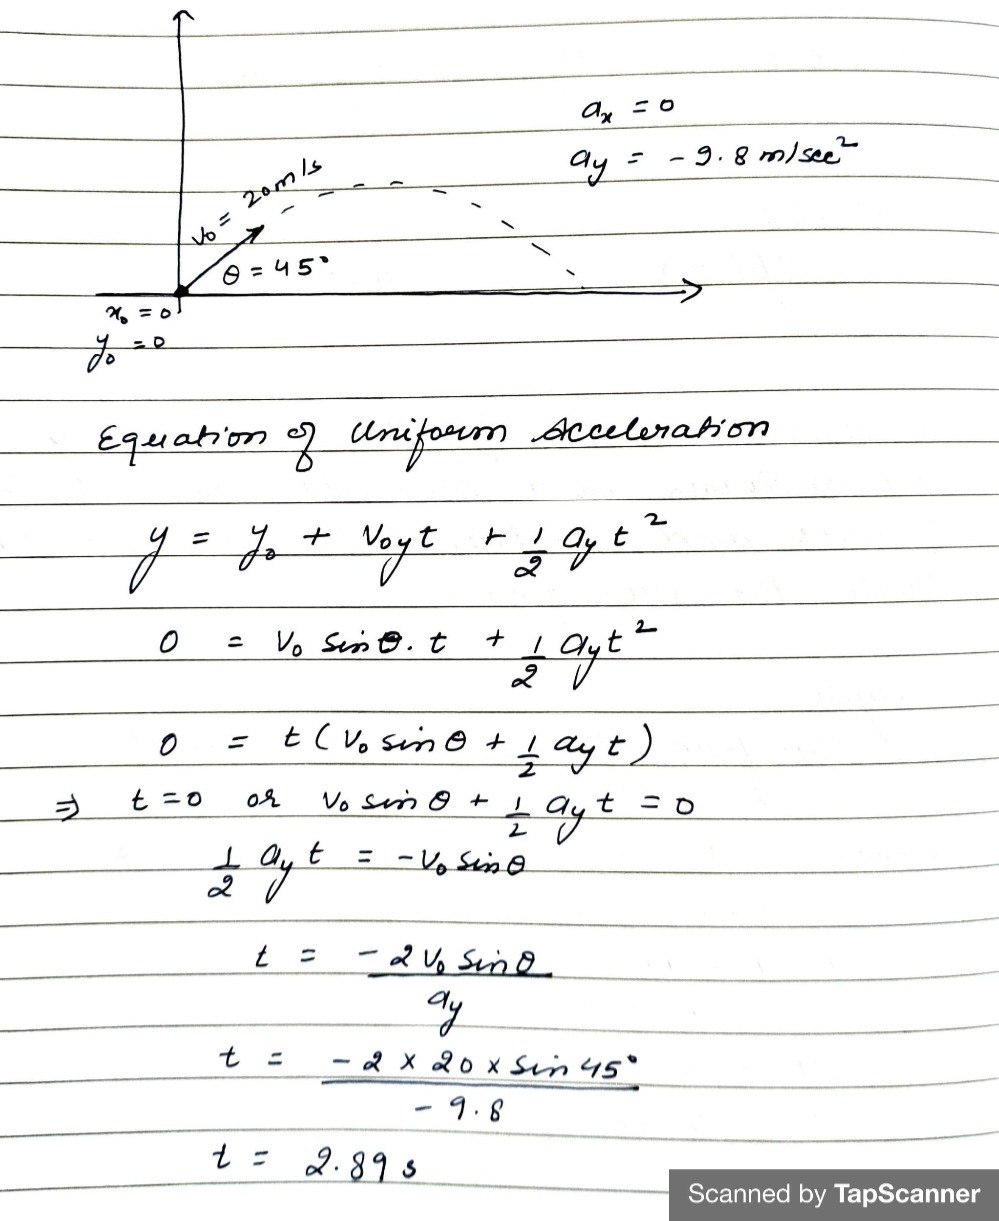 aₓ = 0
a_y = - 9.8 m/sec²
v₀ = 20m/s
θ = 45°
x₀ = 0
y₀ = 0
Equation of Uniform Acceleration
y = y₀ + v₀yt + 1/2 a_y t²
0 = v₀ sinθ. t + 1/2 a_y t²
0 = t ( v₀ sin θ + 1/2 a_y t )
⇒ t = 0 or v₀ sin θ + 1/2 a_y t = 0
1/2 a_y t = - v₀ sin θ
t = - 2 v₀ sin θ / a_y
t = - 2 × 20 × sin 45° / - 9.8
t = 2.89 s
Scanned by TapScanner